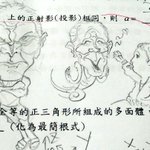 上的正射影(投影)相同，則 a=
全等的正三角形所組成的多面體，
(化為最簡根式)